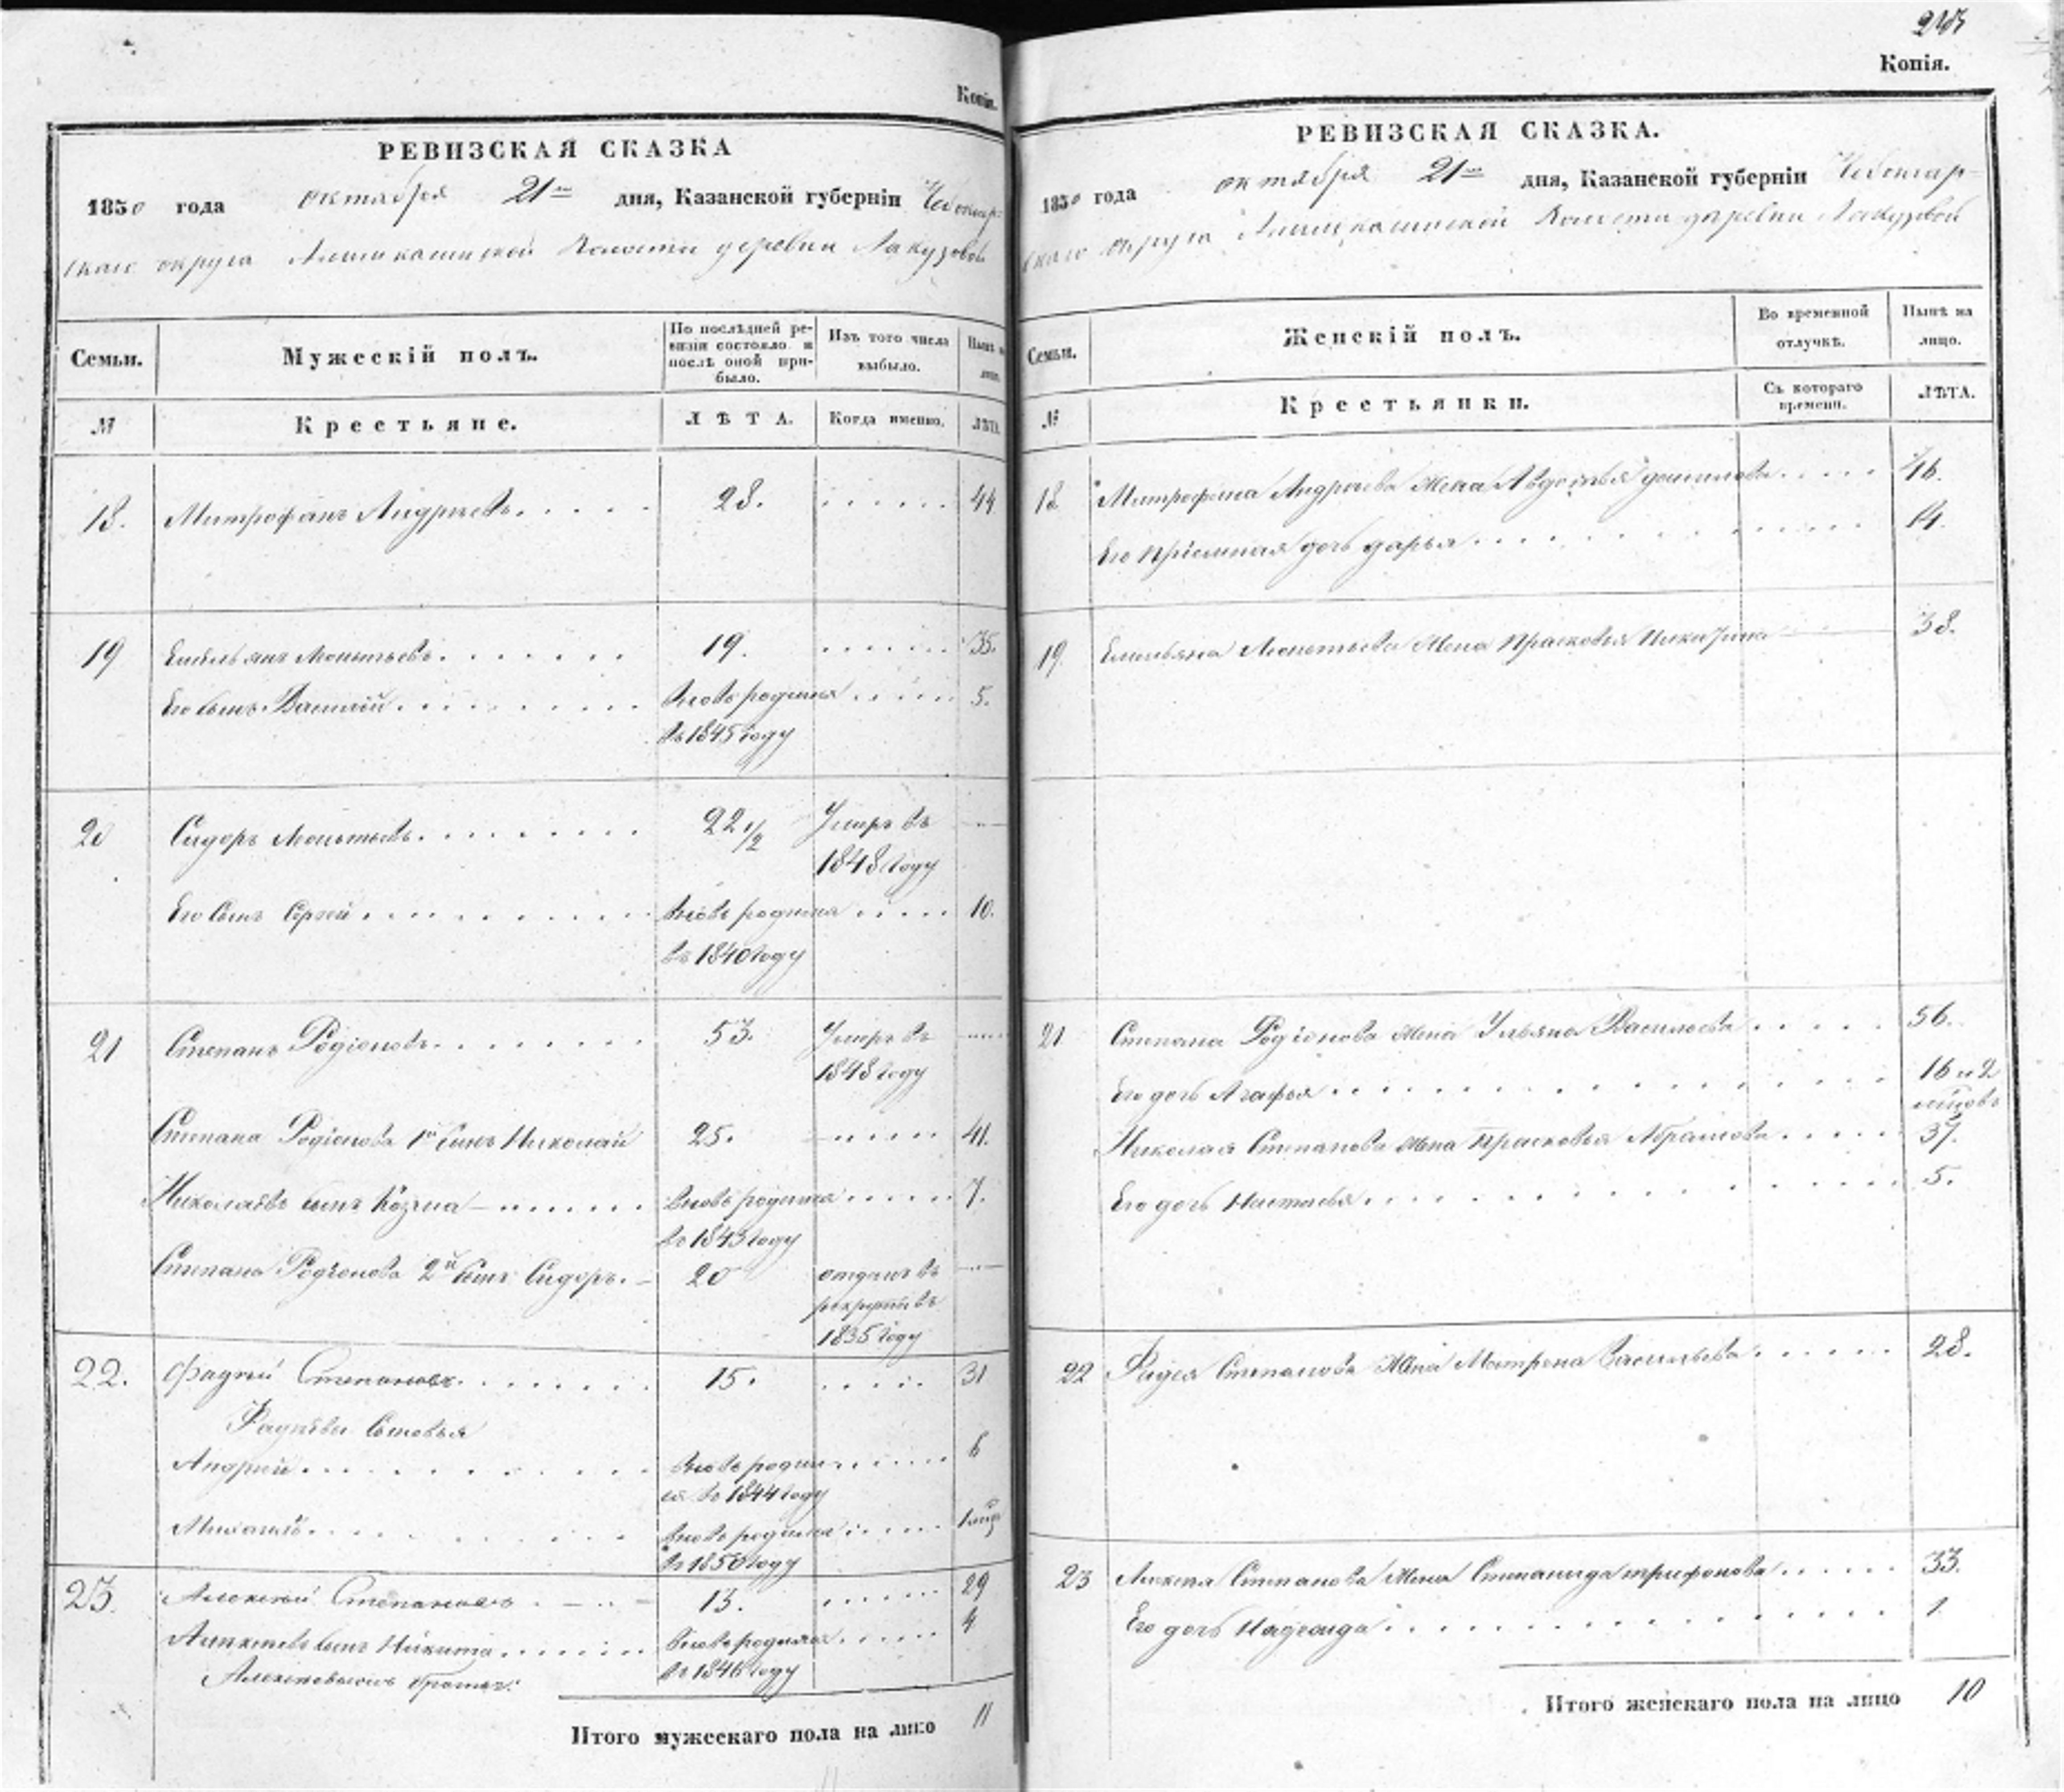 Копія.
РЕВИЗСКАЯ СКАЗКА
1850 года октября 21го дня, Казанской губерніи Чебоксар-
скаго округа Волости деревни
Семьи.
Мужескій полъ.
По послѣдней ре-
визіи состояло и
послѣ оной при-
было.
Изъ того числа
выбыло.
Нынѣ на
лицо.
№
Крестьяне.
ЛѢТА.
Когда именно.
ЛѢТА.
18. Митрофанъ Андреевъ 28. 44
19 Емельянъ Леонтьевъ 19. 35.
Его сынъ Василій вновь родился 5.
въ 1845 году
20 Сидоръ Леонтьевъ 22 1/2 Умеръ въ
1848 году
Его сынъ Сергѣй вновь родился 10.
въ 1840 году
21 Степанъ Родіоновъ 53. Умеръ въ
1848 году
Степана Родіонова 1й сынъ Николай 25. 41.
Николаевъ сынъ Козма вновь родился 7.
въ 1843 году
Степана Родіонова 2й сынъ Сидоръ. 20 отданъ въ
рекруты въ
1835 году
22. Фадѣй Степановъ 15. 31
Фадѣевы сыновья
Андрей вновь родил- 6
ся въ 1844 году
Михаилъ вновь родился
въ 1850 году
23. Алексѣй Степановъ 13. 29
Алексѣевъ сынъ Никита вновь родился 4
въ 1846 году
Итого мужескаго пола на лицо 11
Копія.
РЕВИЗСКАЯ СКАЗКА.
1850 года октября 21го дня, Казанской губерніи Чебоксар-
скаго округа Волости деревни
Семьи.
Женскій полъ.
Во временной
отлучкѣ.
Нынѣ на
лицо.
№
Крестьянки.
Съ котораго
времени.
ЛѢТА.
18 Митрофана Андреева жена Авдотья 46.
Его пріемная дочь дарья 14.
19. Емельяна Леонтьева жена Прасковья Никитина 38.
21. Степана Родіонова жена Ульяна Васильева 56.
Его дочь Агафья 16 и 2
Николая Степанова жена Прасковья Абрамова 37.
Его дочь Настасья 5.
22 Фадея Степанова жена Матрена Васильева 28.
23 Алексея Степанова жена Степанида трифонова 33.
Его дочь Надежда 1
Итого женскаго пола на лицо 10